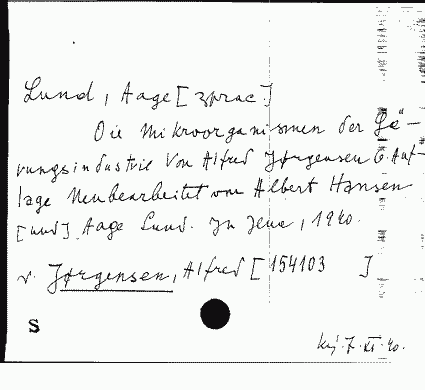 Lund, Aage [zprac.]
Die Mikroorganismen der Gä-
rungsindustrie von Alfred Jørgensen 6. Auf-
lage Neubearbeitet von Albert Hansen
[und] Aage Lund. In Jena, 1940.
v. Jørgensen, Alfred [154103 ]
S
7. XI. 40.